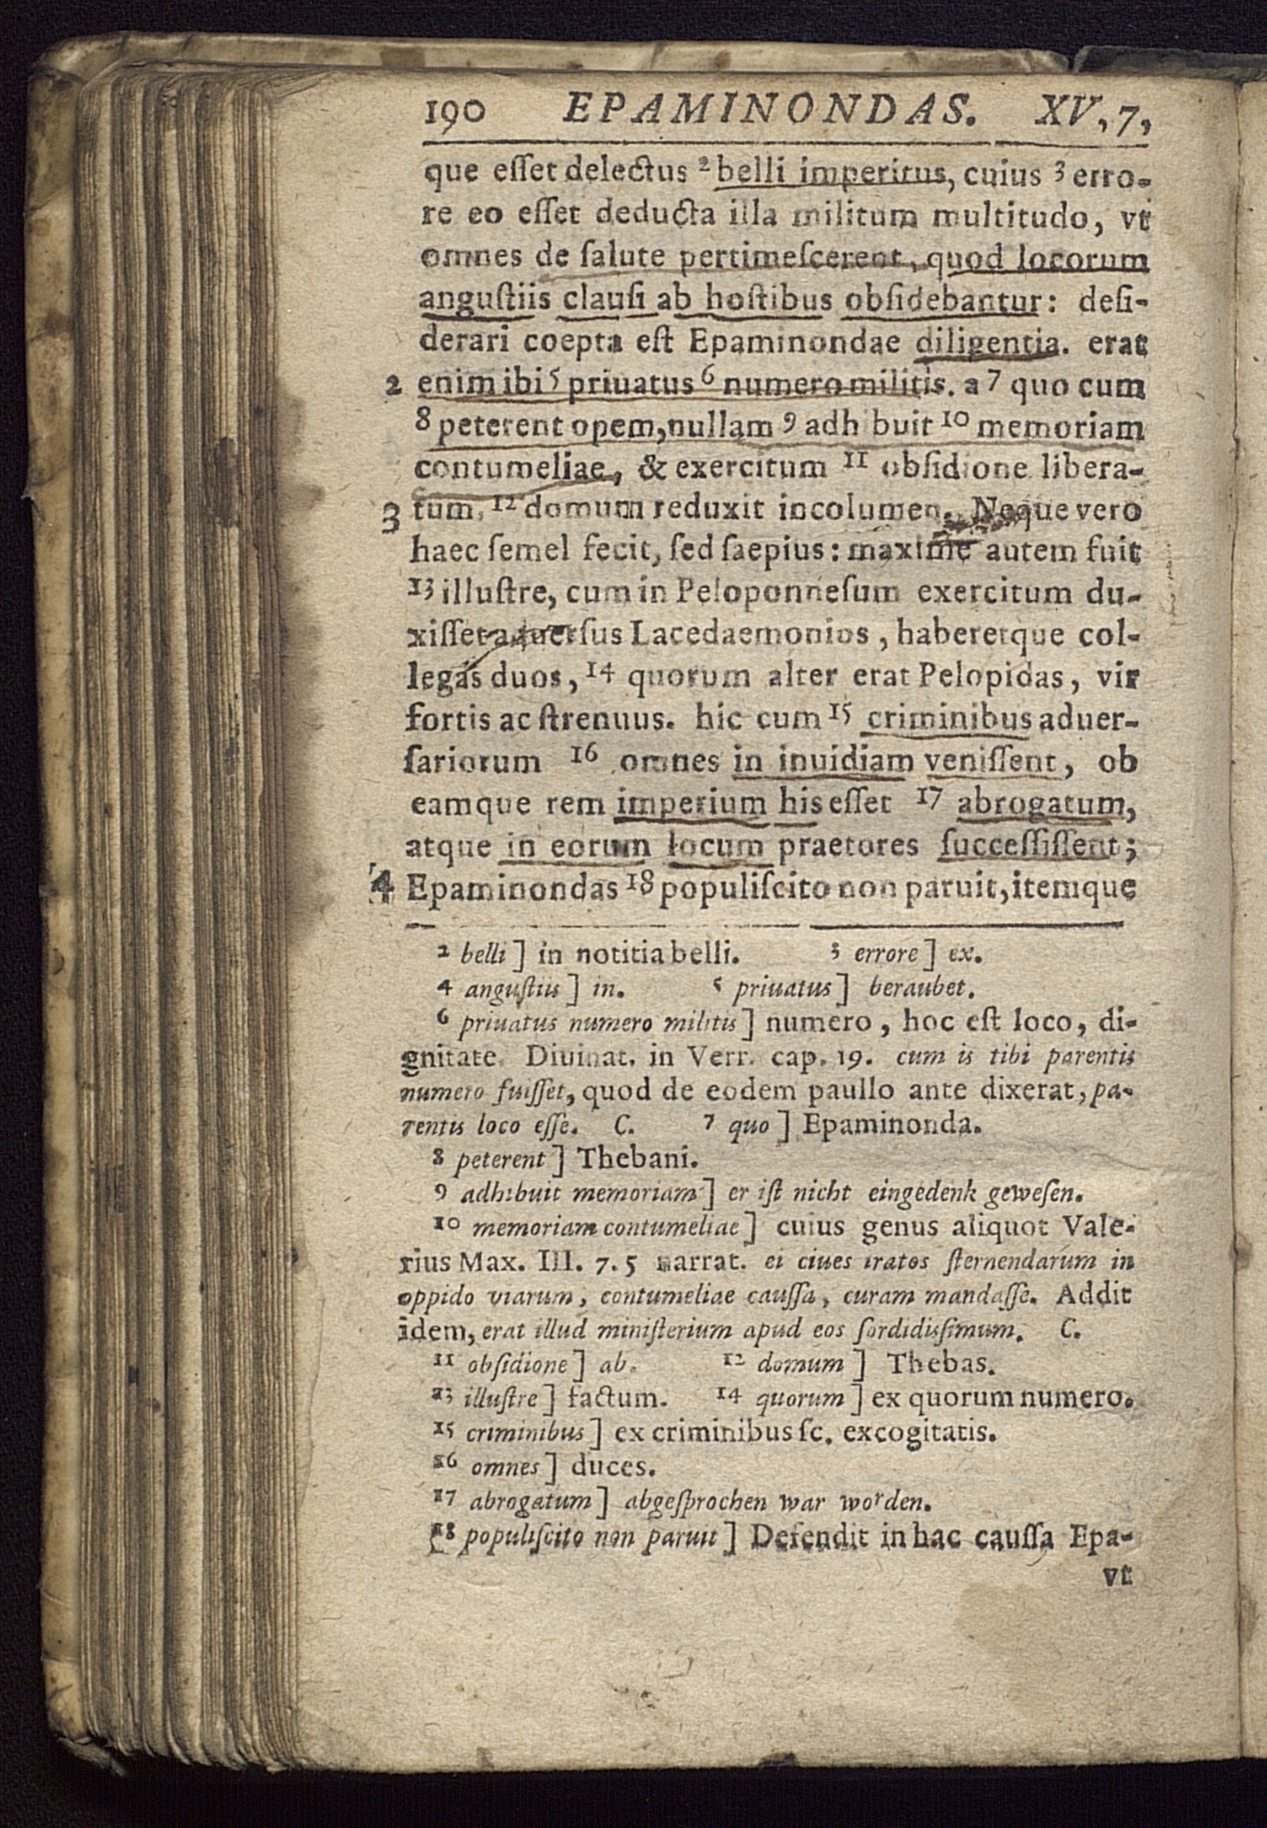 190 EPAMINONDAS. XV, 7,
que eſſet delectus ² belli imperitus, cuius ³ erro-
re eo eſſet deducta illa militum multitudo, vt
omnes de ſalute pertimeſcerent, quod locorum
anguſtiis clauſi ab hoſtibus obſidebantur: deſi-
derari coepta eſt Epaminondae diligentia. erat
2 enim ibi ⁵ priuatus ⁶ numero militis. a ⁷ quo cum
⁸ peterent opem, nullam ⁹ adhibuit ¹⁰ memoriam
contumeliae, & exercitum ¹¹ obſidione libera-
3 tum, ¹² domum reduxit incolumen. Neque vero
haec ſemel fecit, ſed ſaepius: maxime autem fuit
¹³ illuſtre, cum in Peloponneſum exercitum du-
xiſſet aduerſus Lacedaemonios, haberetque col-
legas duos, ¹⁴ quorum alter erat Pelopidas, vir
fortis ac ſtrenuus. hic cum ¹⁵ criminibus aduer-
ſariorum ¹⁶ omnes in inuidiam veniſſent, ob
eamque rem imperium his eſſet ¹⁷ abrogatum,
atque in eorum locum praetores ſucceſſiſſent;
4 Epaminondas ¹⁸ populiſcito non paruit, itemque
² belli] in notitia belli. ³ errore] ex.
⁴ anguſtiis] in. ⁵ priuatus] beraubet.
⁶ priuatus numero militis] numero, hoc eſt loco, di-
gnitate. Diuinat. in Verr. cap. 19. cum is tibi parentis
numero fuiſſet, quod de eodem paullo ante dixerat, pa-
rentis loco eſſe. C. ⁷ quo] Epaminonda.
⁸ peterent] Thebani.
⁹ adhibuit memoriam] er iſt nicht eingedenk geweſen.
¹⁰ memoriam contumeliae] cuius genus aliquot Vale-
rius Max. III. 7. 5 narrat. ei ciues iratos ſternendarum in
oppido viarum, contumeliae cauſſa, curam mandaſſe. Addit
idem, erat illud miniſterium apud eos ſordidiſſimum. C.
¹¹ obſidione] ab. ¹² domum] Thebas.
¹³ illuſtre] factum. ¹⁴ quorum] ex quorum numero.
¹⁵ criminibus] ex criminibus ſc. excogitatis.
¹⁶ omnes] duces.
¹⁷ abrogatum] abgeſprochen war worden.
¹⁸ populiſcito non paruit] Defendit in hac cauſſa Epa-
vt